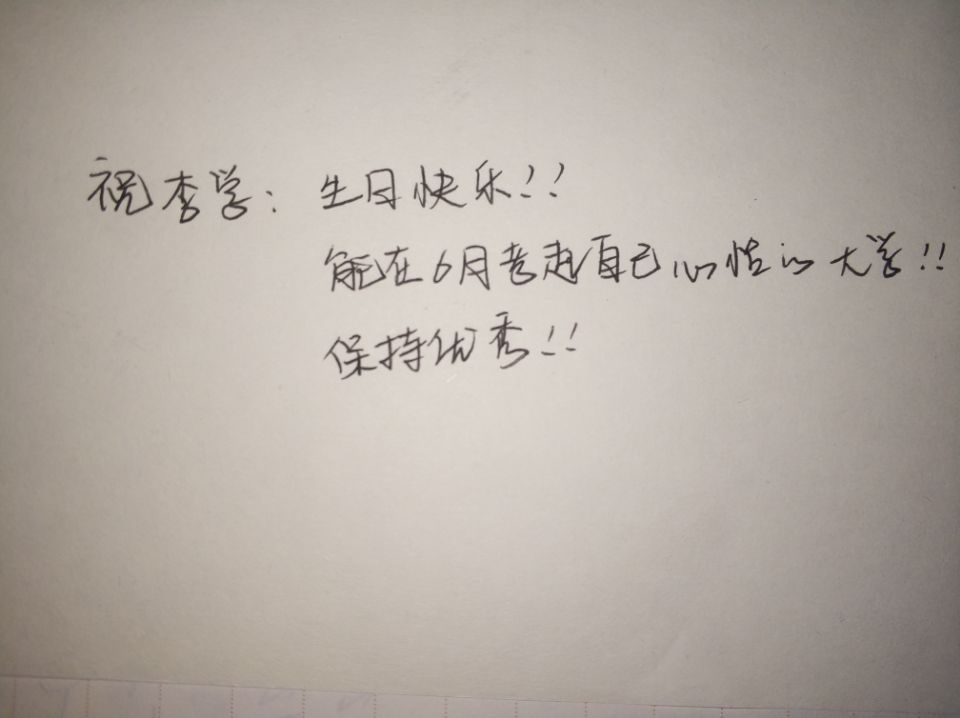 祝李学：生日快乐!!
能在6月考起自己心怡的大学!!
保持优秀!!